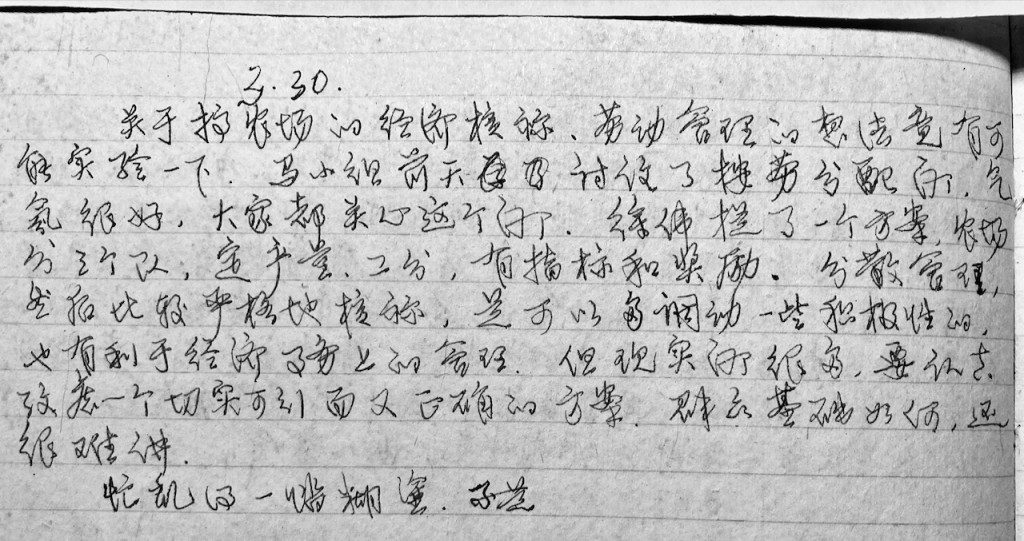 3.30.
关于搞农场的经济核称、劳动管理的想法竟有可
能实验一下. 马小组前天 讨论了按劳分配问. 气
氛很好, 大家都关心这个问. 徐伟拦了一个方案, 农场
分三个队, 定产量、工分, 有指标和奖励. 分散管理,
然后比较严格地核称, 是可以多调动一些积极性的,
也有利于经济 上的管理. 但现实问很多, 要认真
改虑一个切实可行而又正确的方案. 群众基础如何, 还
很难讲.
忙乱得一塌糊涂.